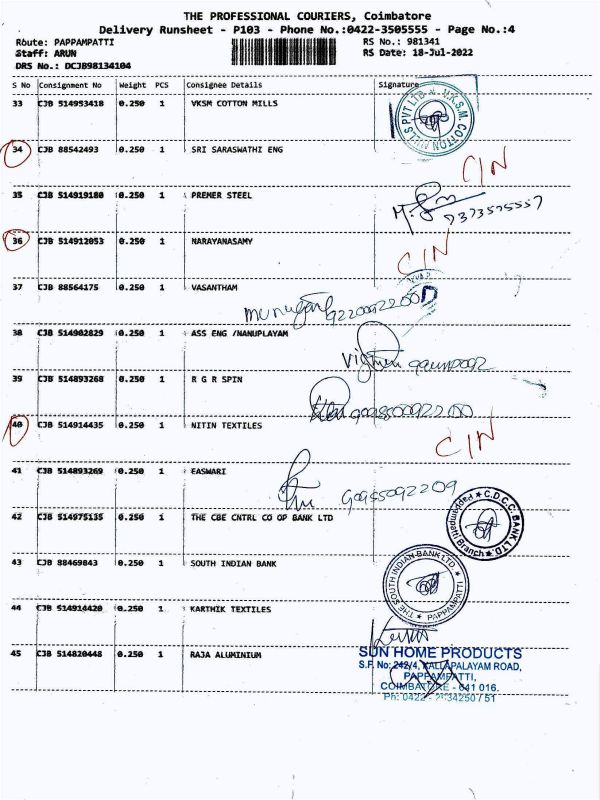 THE PROFESSIONAL COURIERS, Coimbatore
Delivery Runsheet - P103 - Phone No.:0422-3505555 - Page No.:4
Route: PAPPAMPATTI RS No.: 981341
Staff: ARUN RS Date: 18-Jul-2022
DRS No.: DCJB98134104
S No Consignment No Weight PCS Consignee Details Signature
33 CJB 514953418 0.250 1 VKSM COTTON MILLS
V.K.S.M. COTTON MILLS PVT LTD
34 CJB 88542493 0.250 1 SRI SARASWATHI ENG
CIN
35 CJB 514919180 0.250 1 PREMER STEEL
36 CJB 514912053 0.250 1 NARAYANASAMY
CIN
37 CJB 88564175 0.250 1 VASANTHAM
38 CJB 514902829 0.250 1 ASS ENG /NANUPLAYAM
39 CJB 514893268 0.250 1 R G R SPIN
40 CJB 514914435 0.250 1 NITIN TEXTILES
CIN
41 CJB 514893269 0.250 1 EASWARI
42 CJB 514975135 0.250 1 THE CBE CNTRL CO OP BANK LTD
C.D.C.C. BANK LTD. Pappampatti Branch
43 CJB 88469843 0.250 1 SOUTH INDIAN BANK
THE SOUTH INDIAN BANK LTD. PAPPAMPATTI
44 CJB 514914420 0.250 1 KARTHIK TEXTILES
45 CJB 514820448 0.250 1 RAJA ALUMINIUM
SUN HOME PRODUCTS
S.F. No: 242/4, KALLAPALAYAM ROAD,
PAPPAMPATTI,
COIMBATORE - 641 016.
Ph: 0422 - 2634250 / 51